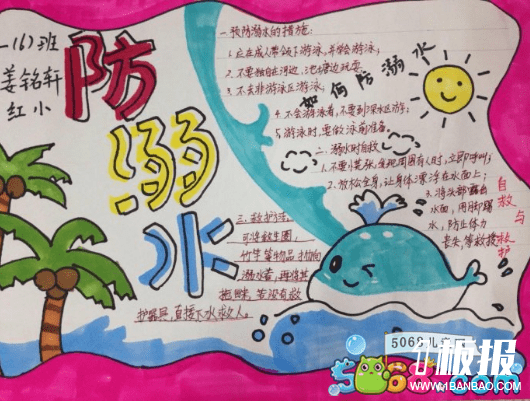 一(6)班
姜铭轩
红小
防
溺
水
如何防溺水
一预防溺水的措施:
1.应在成人带领下游泳,并学会游泳;
2.不要独自在河边、池塘边玩耍.
3.不去非游泳区游泳;
4.不会游泳者,不要到深水区游;
5.游泳时,要做泳前准备。
二、溺水时自救
1.不要慌张,发现周围有人时,立即呼叫;
2.放松全身,让身体漂浮在水面上;
3.将头部露出
水面,用脚踢
水,防止体力
丧失,等救援
自救与救护
三、救护法:
可将救生圈、
竹竿等物品抛向
溺水者,再将其
拖岸。若没有救
护器具,直接下水救人。
5068儿
5068
1极报
WWW.01BANBAO.COM